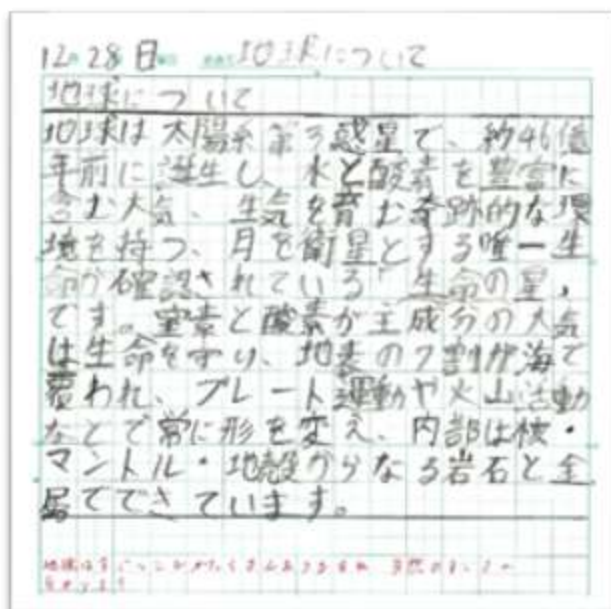 12月28日 地球について
地球について
地球は太陽系第3惑星で、約46億
年前に誕生し、水と酸素を豊富に
含む大気、生気を育む奇跡的な環
境を持つ、月を衛星とする唯一生
命が確認されている「生命の星」
です。窒素と酸素が主成分の大気
は生命を守り、地表の7割が海で
覆われ、プレート運動や火山活動
などで常に形を変え、内部は核・
マントル・地殻からなる岩石と金
属でできています。
地球はすごいところがたくさんありますね